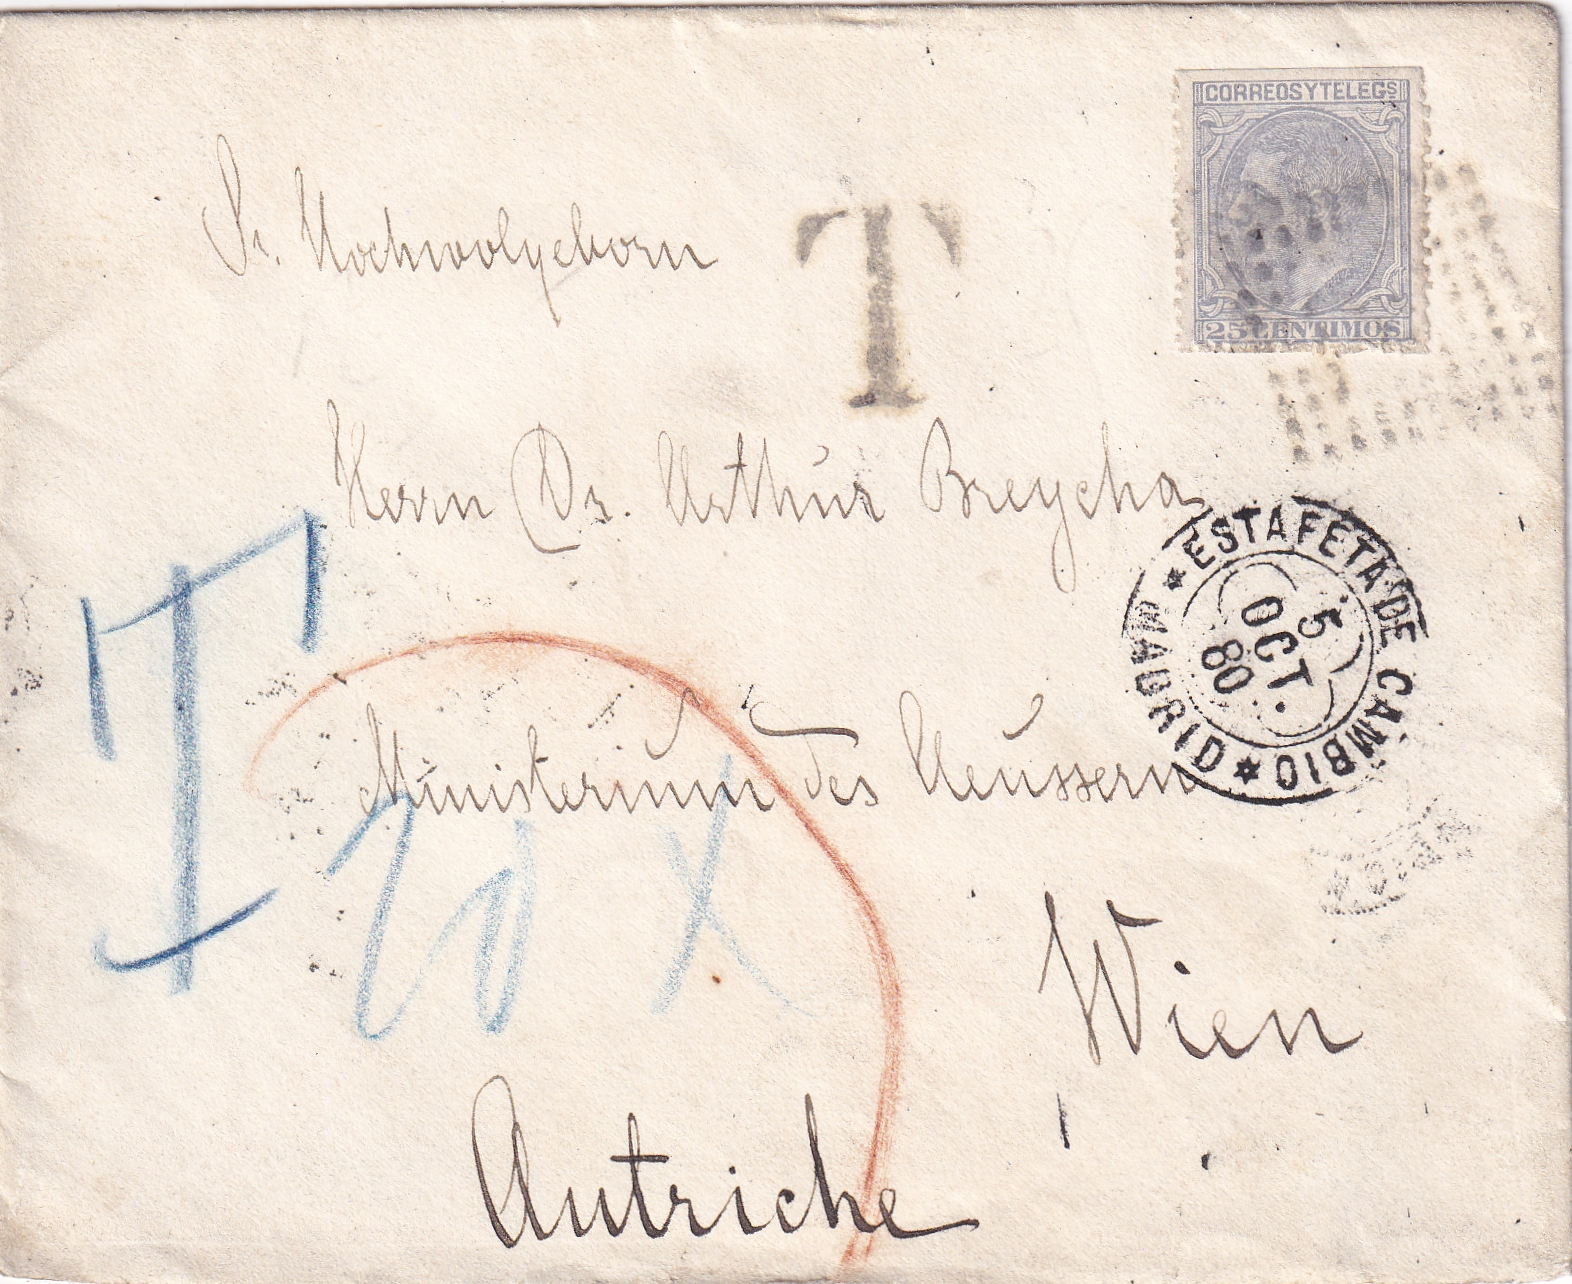 CORREOS Y TELEGS
25 CENTIMOS
T
Sr. Hochwolgeborn
Herrn Dr. Arthur Breycha
ESTAFETA DE CAMBIO
5
OCT.
80
MADRID
T
Ministerium des Aeussern
20 x
Wien
Autriche